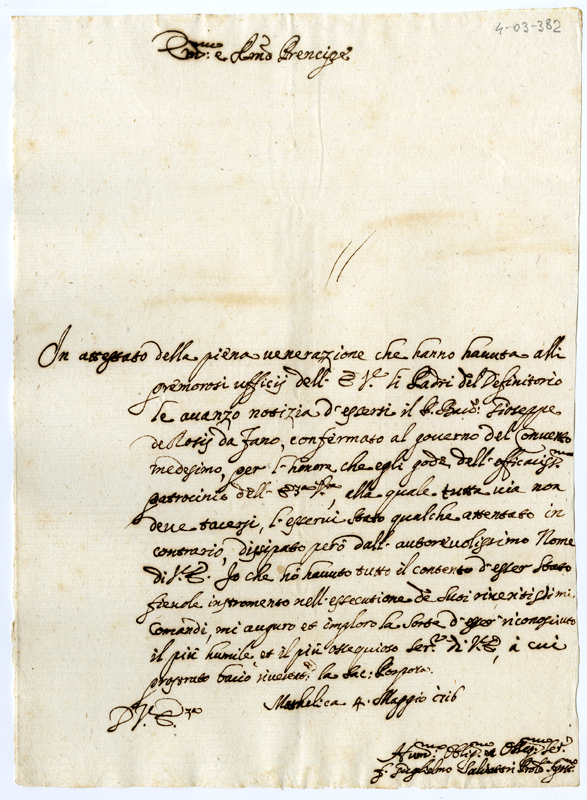 4-03-382
Em.mo e Rmo Prencipe
In attestato della piena venerazione che hanno havuta alli
premurosi ufficij dell' E. V. li Padri del Definitorio
le avanzo notizia d'essersi il P. Gioseppe
de Rossij da Fano, confermato al governo del Convento
medesimo, per l'honore che egli gode dell' efficaciss.mo
patrocinio dell' E.za V.ra, alla quale tutta via non
deve tacersi, l'esservi stato qualche attentato in
contrario, dissipato però dall' autorevolissimo Nome
di V. E. Io che hò havuto tutto il contento d'esser stato
fievole instromento nell' essecutione de Suoi riveritissimi
Comandi, mi auguro et imploro la sorte d'esser riconosciuto
il più humile et il più ossequioso ser.re di V. E. à cui
prostrato bacio riverent.e la Sac. Porpora.
Mathelica 4. Maggio 1716
D. V. E.za
Hum.mo Oblig.mo et Osseq.mo Ser.e
f. Guglielmo Salvatori